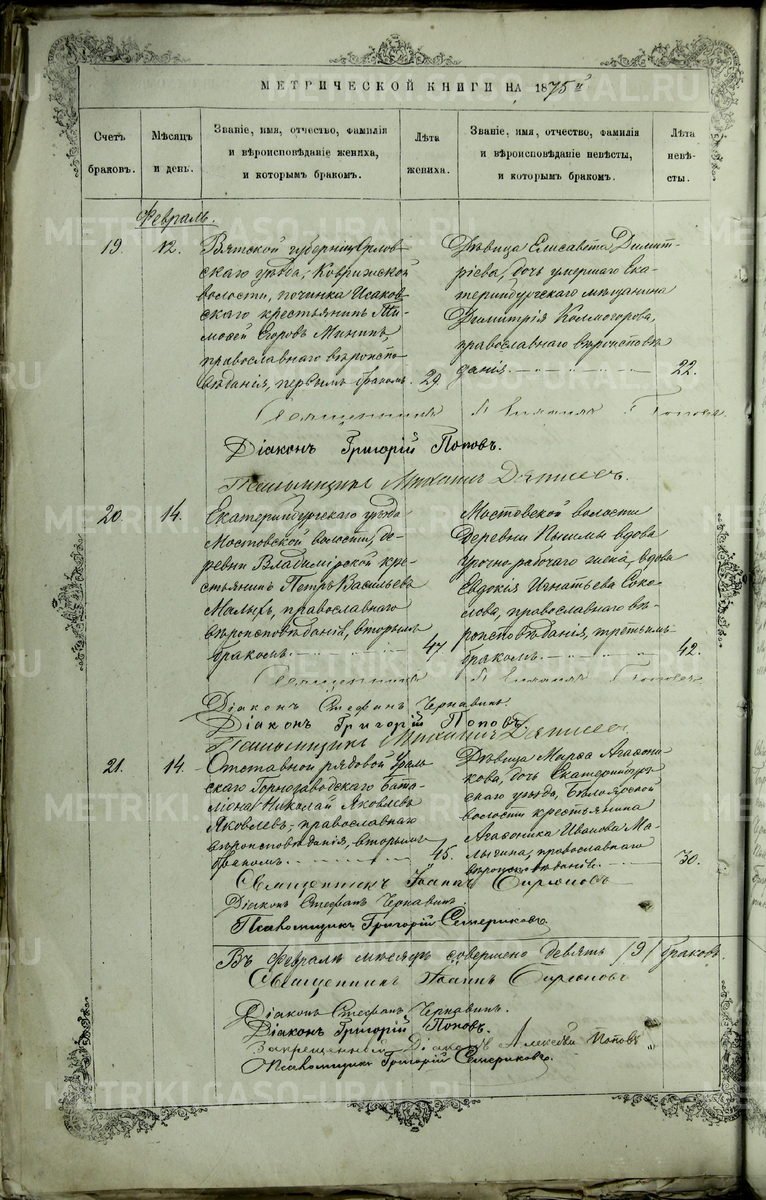 МЕТРИЧЕСКОЙ КНИГИ НА 1875й
Счетъ браковъ.
Мѣсяцъ и день.
Званіе, имя, отчество, фамилія
и вѣроисповѣданіе жениха,
и которымъ бракомъ.
Лѣта жениха.
Званіе, имя, отчество, фамилія
и вѣроисповѣданіе невѣсты,
и которымъ бракомъ.
Лѣта невѣ-
сты.
Февраль.
19. 12.
Вятской губерніи Орлов-
скаго уѣзда, Коврижской
волости, починка Исаков-
скаго крестьянинъ Ти-
моѳей Егоровъ Мининъ,
православнаго вѣроиспо-
вѣданія, первымъ бракомъ. 29.
Дѣвица Елисавета Димит-
ріева, дочь умершаго Ека-
теринбургскаго мѣщанина
Димитрія Колмогорова,
православнаго вѣроисповѣ-
данія. 22.
Священникъ Попова
Діаконъ Григорій Поповъ.
Псаломщикъ Михаилъ
20. 14.
Екатеринбургскаго уѣзда
Мостовской волости, де-
ревни Владимірской кре-
стьянинъ Петръ Васильевъ
Малыхъ, православнаго
вѣроисповѣданія, вторымъ
бракомъ. 47.
Мостовской волости
деревни Пышмы вдова
урочно-рабочаго
вдова
Евдокія Игнатьева Соко-
лова, православнаго вѣ-
роисповѣданія, третьимъ
бракомъ. 42.
Священникъ Поповъ
Діаконъ Стефанъ Чернавинъ.
Діаконъ Григорій Поповъ
Псаломщикъ Михаилъ
21. 14.
Отставной рядовой Ураль-
скаго Горнозаводскаго Бата-
ліона Николай Яковлевъ
Яковлевъ, православнаго
вѣроисповѣданія, вторымъ
бракомъ. 45.
Дѣвица Марѳа Агаѳони-
кова, дочь Екатеринбург-
скаго уѣзда, Бѣлоярской
волости крестьянина
Агаѳоника Иванова Ма-
лыгина, православнаго
вѣроисповѣданія. 30.
Священникъ Іоаннъ
Діаконъ Стефанъ Чернавинъ.
Псаломщикъ Григорій Семериковъ
Въ Февралѣ мѣсяцѣ совершено девять /9/ браковъ.
Священникъ Іоаннъ
Діаконъ Стефанъ Чернавинъ.
Діаконъ Григорій Поповъ.
Запрещенный Діаконъ Алексѣй Поповъ
Псаломщикъ Григорій Семериковъ.
METRIKI.GASO-URAL.RU